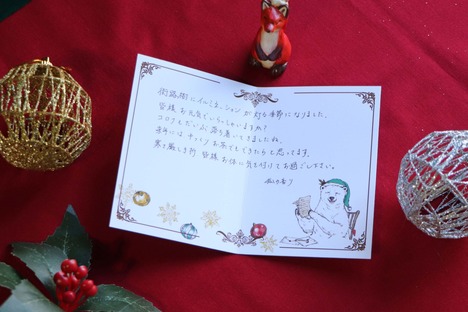 街路樹にイルミネーションが灯る季節になりました。
皆様お元気でいらっしゃいますか?
コロナもだいぶ落ち着いてきましたね。
はゆっくりお茶でもできたらと思ってます。
寒さ厳しき折 皆様お体に気を付けてお過ごし下さい。